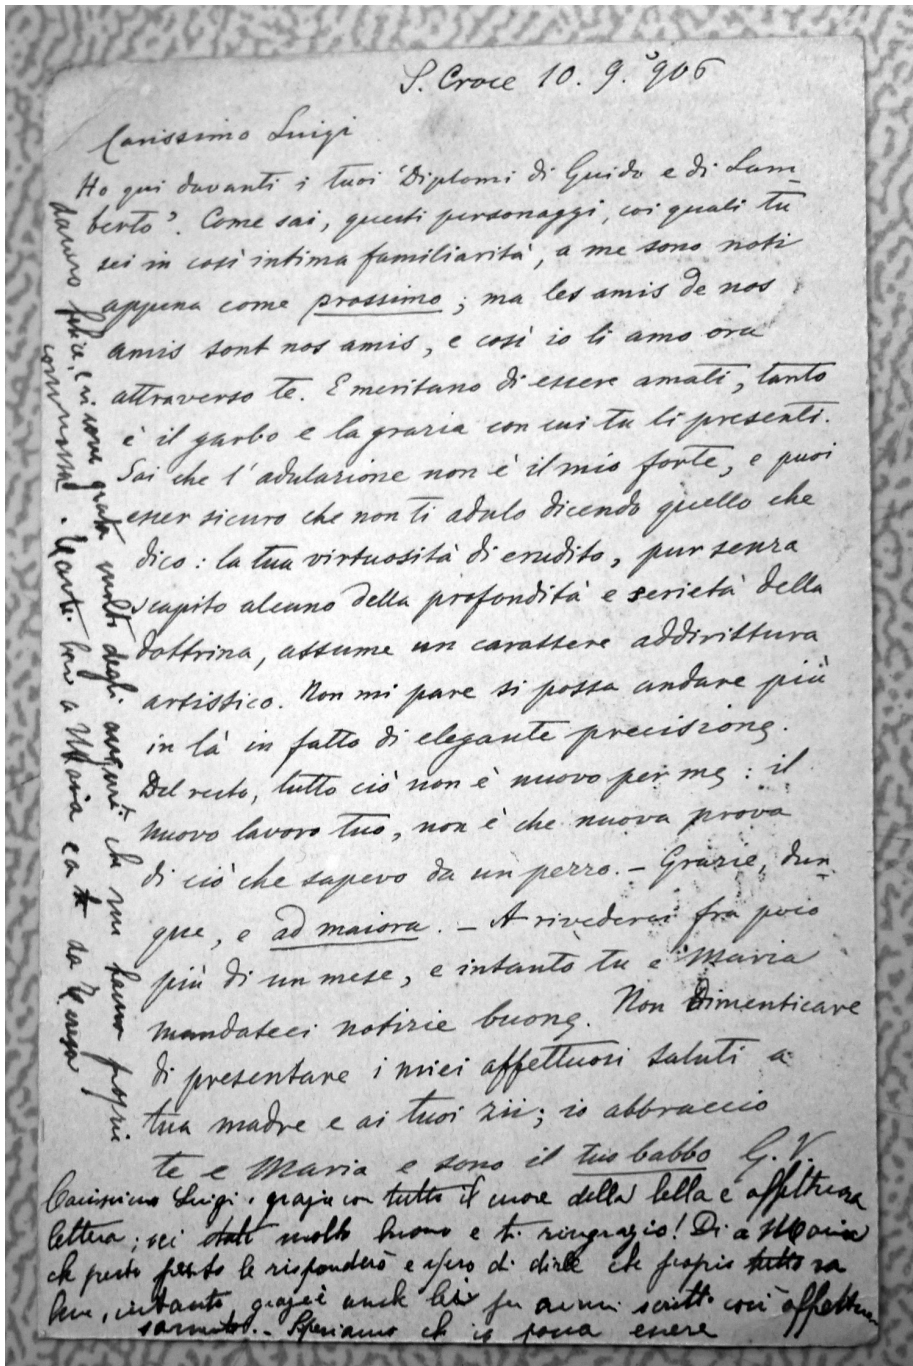 S. Croce 10. 9. '906
Carissimo Luigi
Ho qui davanti i tuoi 'Diplomi di Guido e di Lam-
berto'. Come sai, questi personaggi, coi quali tu
sei in così intima familiarità, a me sono noti
appena come prossimo; ma les amis de nos
amis sont nos amis, e così io li amo ora
attraverso te. E meritano di essere amati, tanto
è il garbo e la grazia con cui tu li presenti.
Sai che l'adulazione non è il mio forte, e puoi
esser sicuro che non ti adulo dicendo quello che
dico: la tua virtuosità di erudito, pur senza
scapito alcuno della profondità e serietà della
dottrina, assume un carattere addirittura
artistico. Non mi pare si possa andare più
in là in fatto di elegante precisione.
Del resto, tutto ciò non è nuovo per me: il
nuovo lavoro tuo, non è che nuova prova
di ciò che sapevo da un pezzo. – Grazie, dun-
que, e ad maiora. – A rivederci fra poco
più di un mese, e intanto tu e Maria
mandateci notizie buone. Non dimenticare
di presentare i miei affettuosi saluti a
tua madre e ai tuoi zii; io abbraccio
te e Maria e sono il tuo babbo G. V.
Carissimo Luigi, grazie con tutto il cuore della bella e affettuosa
lettera; sei stato molto buono e ti ringrazio! Di a Maria
che presto presto le risponderò e spero di dirle che proprio tutto va
bene, intanto, grazie anche lei per avermi scritto così affettuo
samente. – Speriamo che io possa essere
davvero felice, e vi sono grata molto degli auguri che mi hanno proprio
commossa. Tanti baci a Maria e a te da